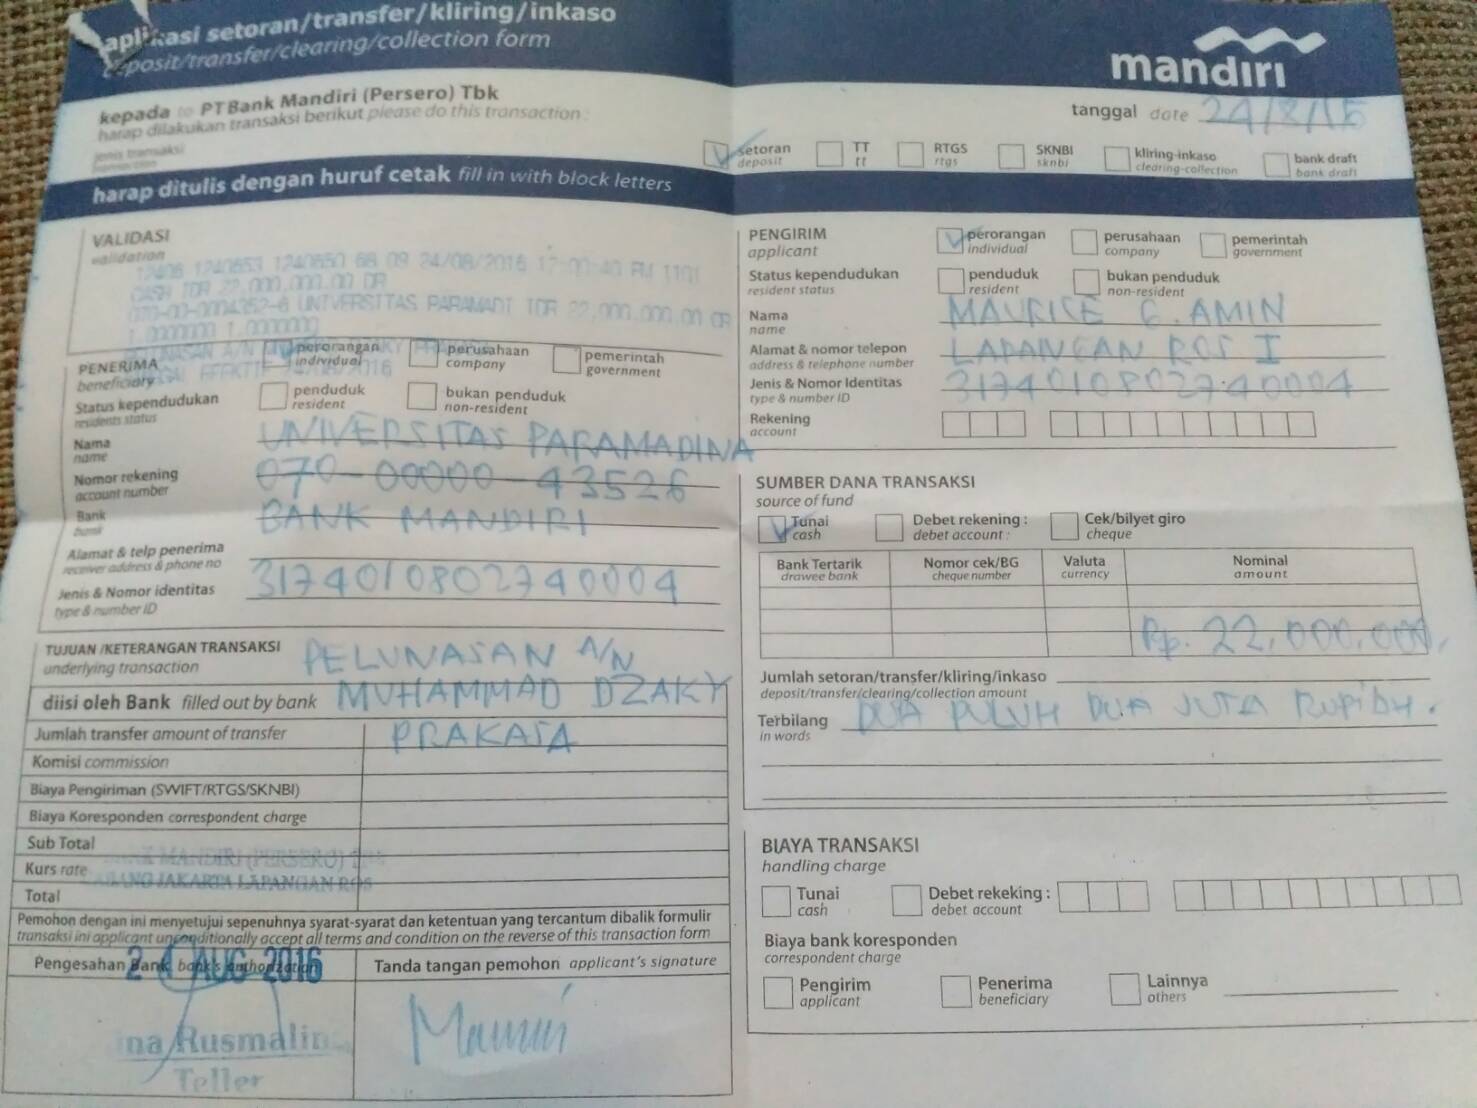 aplikasi setoran/transfer/kliring/inkaso
deposit/transfer/clearing/collection form
mandiri
kepada to PT Bank Mandiri (Persero) Tbk
harap dilakukan transaksi berikut please do this transaction :
jenis transaksi
tanggal date 24/8/16
setoran deposit
TT tt
RTGS rtgs
SKNBI sknbi
kliring-inkaso clearing-collection
bank draft bank draft
harap ditulis dengan huruf cetak fill in with block letters
VALIDASI
validation
12406 1240653 1240650 68 09 24/08/2016 12:00:40 PM 1101
CASH IDR 22,000,000.00 DR
070-00-0004352-6 UNIVERSITAS PARAMADI IDR 22,000,000.00 CR
1.0000000 1.0000000
PENERIMA
beneficiary
perorangan individual
perusahaan company
pemerintah government
Status kependudukan
residents status
penduduk resident
bukan penduduk non-resident
Nama
name
UNIVERSITAS PARAMADINA
Nomor rekening
account number
070-00000-43526
Bank
bank
BANK MANDIRI
Alamat & telp penerima
receiver address & phone no
Jenis & Nomor identitas
type & number ID
3174010802740004
TUJUAN /KETERANGAN TRANSAKSI
underlying transaction
PELUNASAN A/N
MUHAMMAD DZAKY
PRAKASA
diisi oleh Bank filled out by bank
Jumlah transfer amount of transfer
Komisi commission
Biaya Pengiriman (SWIFT/RTGS/SKNBI)
Biaya Koresponden correspondent charge
Sub Total
Kurs rate
Total
BANK MANDIRI (PERSERO)
CABANG JAKARTA LAPANGAN ROS
Pemohon dengan ini menyetujui sepenuhnya syarat-syarat dan ketentuan yang tercantum dibalik formulir
transaksi ini applicant unconditionally accept all terms and condition on the reverse of this transaction form
Pengesahan Bank bank's authorization
24 AUG 2016
Rusmalin
Teller
Tanda tangan pemohon applicant's signature
PENGIRIM
applicant
perorangan individual
perusahaan company
pemerintah government
Status kependudukan
resident status
penduduk resident
bukan penduduk non-resident
Nama
name
MAURICE G. AMIN
Alamat & nomor telepon
address & telephone number
LAPANGAN ROS I
Jenis & Nomor Identitas
type & number ID
3174010802740004
Rekening
account
SUMBER DANA TRANSAKSI
source of fund
Tunai cash
Debet rekening : debet account :
Cek/bilyet giro cheque
Bank Tertarik drawee bank
Nomor cek/BG cheque number
Valuta currency
Nominal amount
Rp. 22.000.000,
Jumlah setoran/transfer/kliring/inkaso
deposit/transfer/clearing/collection amount
Terbilang
in words
DUA PULUH DUA JUTA RUPIAH.
BIAYA TRANSAKSI
handling charge
Tunai cash
Debet rekeking : debet account
Biaya bank koresponden
correspondent charge
Pengirim applicant
Penerima beneficiary
Lainnya others